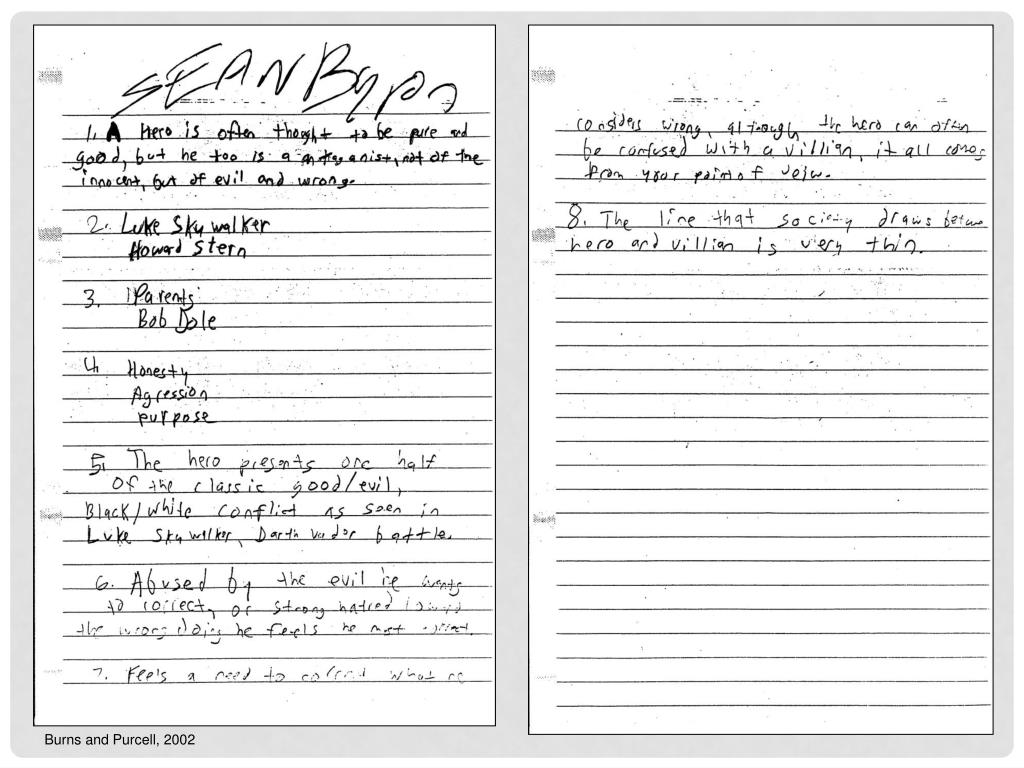 SEAN Byrn
1. A Hero is often thought to be pure and
good, but he too is a antaganist, not of the
innocent, but of evil and wrong.
2. Luke Skywalker
Howard Stern
3. Parents
Bob Dole
4. Honesty
Agression
purpose
5. The hero presents one half
of the classic good/evil,
Black/White conflict as seen in
Luke Skywalker, Darth vador battle.
6. Abused by the evil he wants
to correct, or strong hatred toward
the wrong doing he feels he must
7. Feels a need to what he
considers wrong, although, the hero can often
be confused with a villian, it all comes
from your point of veiw.
8. The line that society draws between
hero and villian is very thin.
Burns and Purcell, 2002